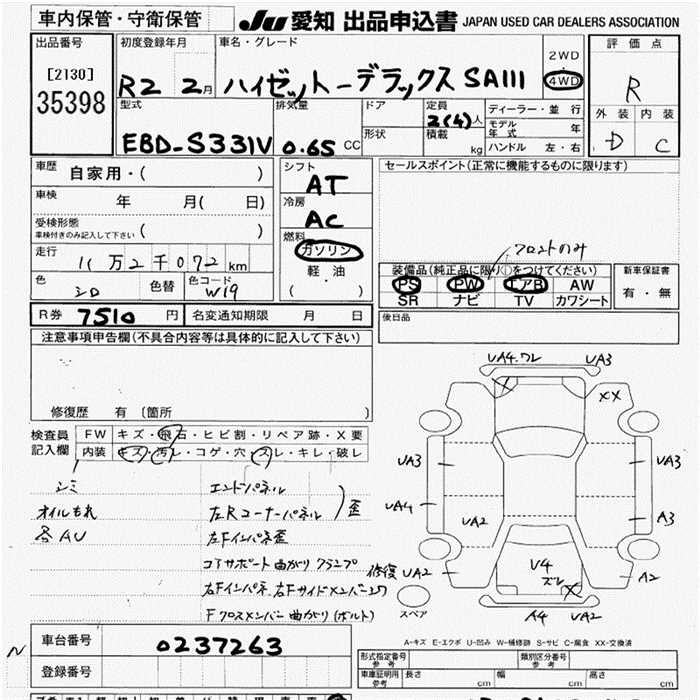 車内保管・守衛保管
JU 愛知 出品申込書 JAPAN USED CAR DEALERS ASSOCIATION
出品番号
[2130]
35398
初度登録年月
R2 2月
車名・グレード
ハイゼットーデラックス SAIII
2WD
・
4WD
評価点
R
外装 内装
D C
型式
EBD-S331V
排気量
0.65 CC
ドア
形状
定員
2(4)人
積載
kg
ディーラー・並行
モデル年式 年
ハンドル 左・右
車歴
自家用・( )
車検
年 月( 日)
受検形態
車検付きのみ記入して下さい ( )
走行
11万2千072km
色
シロ
色替
色コード
W19
シフト
AT
冷房
AC
燃料
ガソリン
軽油
( ・ )
セールスポイント(正常に機能するものに限ります)
フロントのみ
装備品(純正品に限り○をつけてください)
PS PW エアB AW
SR ナビ TV カワシート
新車保証書
有・無
R券 7510 円
名変通知期限 月 日
後日品
注意事項申告欄(不具合内容等は具体的に記入して下さい)
修復歴 有 〔箇所 〕
検査員
記入欄
FW キズ・飛石・ヒビ割・リペア跡・X要
内装 キズ・汚レ・コゲ・穴・スレ・キレ・破レ
シミ
オイルもれ
各AU
エンドパネル
左Rコーナーパネル
歪
左Fインパネ歪
コアサポート曲がり クランプ
右Fインパネ 右Fサイドメンバー
修復
Fクロスメンバー曲がり(ボルト)
UA4.ワレ
UA3
XX
UA3
UA3
UA4
UA2
A3
UA2
V4
ズレ
X
A2
A4
UA2
スペア
A-キズ E-エクボ U-凹み W-補修跡 S-サビ C-腐食 XX-交換済
N
車台番号 0237263
登録番号
形式指定番号
参考
類別区分番号
参考
車庫証明用
参考
長さ cm
幅 cm
高さ cm